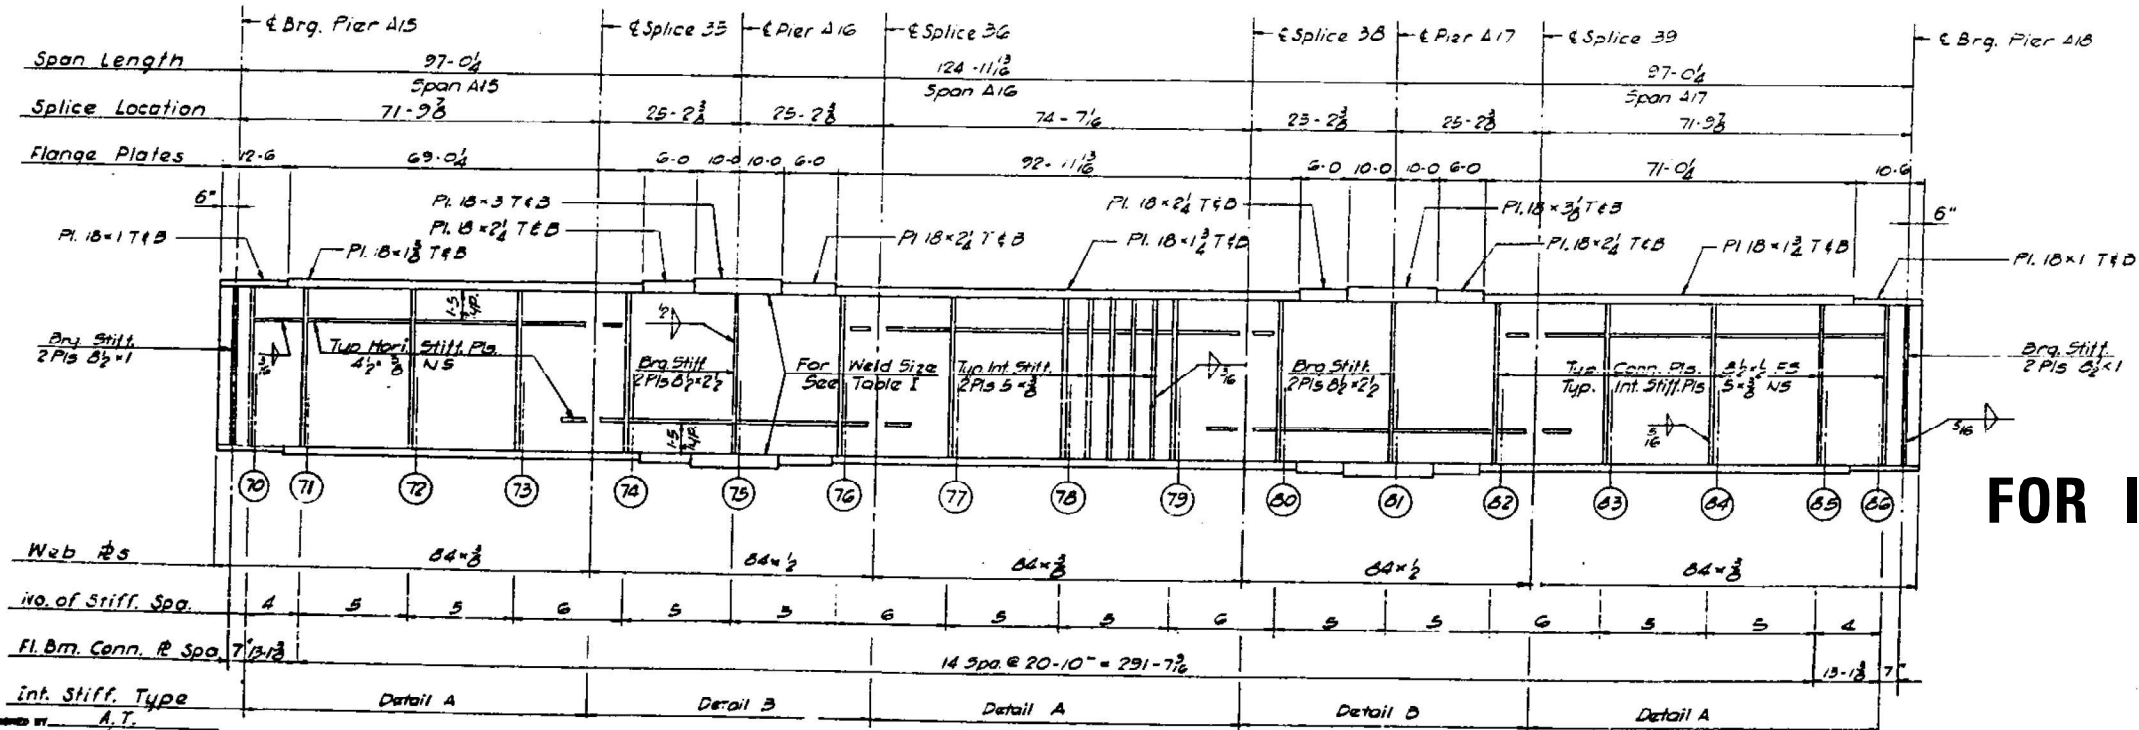 ℄ Brg. Pier A15 ℄ Splice 35 ℄ Pier A16 ℄ Splice 36 ℄ Splice 38 ℄ Pier A17 ℄ Splice 39 ℄ Brg. Pier A18
Span Length 97-0¼ 124-11 13/16 97-0¼
Span A15 Span A16 Span A17
Splice Location 71-9⅞ 25-2⅜ 25-2⅜ 74-7 1/16 25-2⅜ 25-2⅜ 71-9⅞
Flange Plates 12-6 69-0¼ 6-0 10-0 10-0 6-0 92-11 13/16 6-0 10-0 10-0 6-0 71-0¼ 10-6
6" Pl. 18×3 T&B Pl. 18×2¼ T&B Pl. 18×3⅛ T&B 6"
Pl. 18×1 T&B Pl. 18×1⅜ T&B Pl. 18×2¼ T&B Pl 18×2¼ T&B Pl. 18×1¾ T&B Pl. 18×2¼ T&B Pl 18×1¾ T&B Pl. 18×1 T&B
1-5 Typ.
½
Brg. Stiff.
2 Pls 8½×1
Typ. Hori. Stiff. Pls.
4½×⅜ NS
Brg. Stiff.
2 Pls 8½×2½
For Weld Size
See Table I
Typ. Int. Stiff.
2 Pls 5×⅜
3/16
Brg. Stiff.
2 Pls 8½×2½
Typ. Conn. Pls. 8½×½ FS
Typ. Int. Stiff. Pls 5×⅜ NS
Brg. Stiff.
2 Pls 8½×1
1-5 Typ.
5/16
5/16
70 71 72 73 74 75 76 77 78 79 80 81 82 83 84 85 86
FOR I
Web ℙs 84×⅜ 84×½ 84×⅜ 84×½ 84×⅜
No. of Stiff. Spa. 4 5 5 6 5 5 6 5 5 6 5 5 6 5 5 4
Fl. Bm. Conn. ℙ Spa. 7" 13-1⅜ 14 Spa. @ 20-10" = 291-7 3/16 13-1⅜ 7"
Int. Stiff. Type Detail A Detail B Detail A Detail B Detail A
BY A.T.